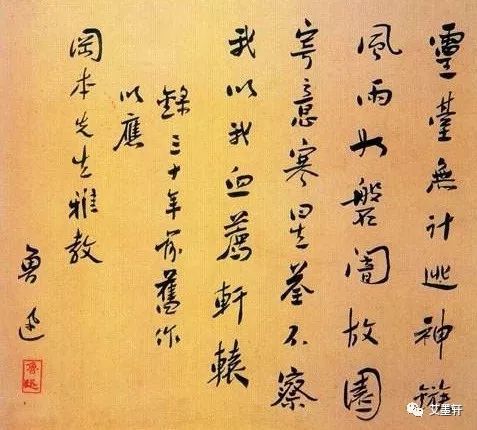 靈臺無計逃神鏃
風雨如磐闇故園
寄意寒星荃不察
我以我血薦軒轅
錄三十年前舊作
以應
岡本先生雅教
魯迅
魯迅
艾墨轩